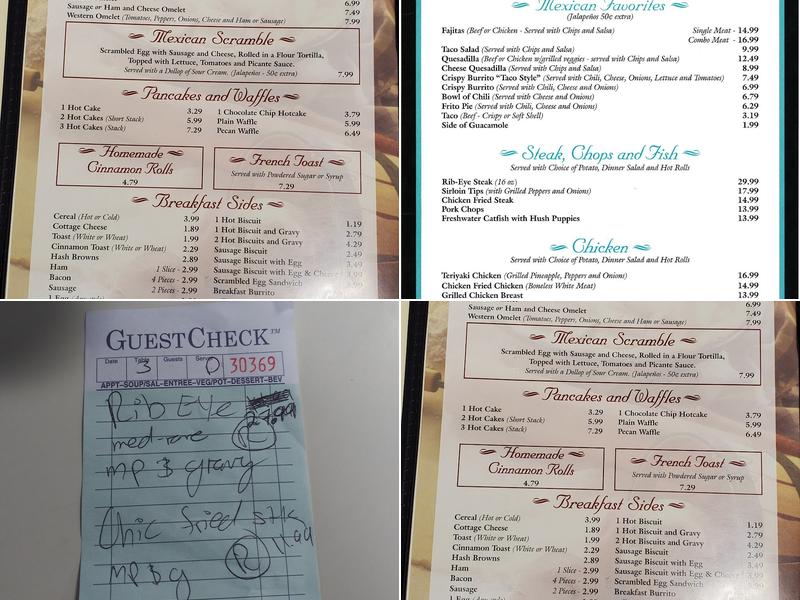 6.99
Sausage or Ham and Cheese Omelet 7.49
Western Omelet (Tomatoes, Peppers, Onions, Cheese and Ham or Sausage) 7.99
Mexican Scramble
Scrambled Egg with Sausage and Cheese, Rolled in a Flour Tortilla,
Topped with Lettuce, Tomatoes and Picante Sauce.
Served with a Dollop of Sour Cream. (Jalapeños - 50¢ extra) 7.99
Pancakes and Waffles
1 Hot Cake 3.29
2 Hot Cakes (Short Stack) 5.99
3 Hot Cakes (Stack) 7.29
1 Chocolate Chip Hotcake 3.79
Plain Waffle 5.99
Pecan Waffle 6.49
Homemade
Cinnamon Rolls
4.79
French Toast
Served with Powdered Sugar or Syrup
7.29
Breakfast Sides
Cereal (Hot or Cold) 3.99
Cottage Cheese 1.89
Toast (White or Wheat) 1.99
Cinnamon Toast (White or Wheat) 2.29
Hash Browns 2.89
Ham 1 Slice - 2.99
Bacon 4 Pieces - 2.99
Sausage 2 Pieces - 2.99
1 Hot Biscuit 1.19
1 Hot Biscuit and Gravy 2.79
2 Hot Biscuits and Gravy 4.29
Sausage Biscuit 2.49
Sausage Biscuit with Egg 3.49
Sausage Biscuit with Egg & Cheese
Scrambled Egg Sandwich
Breakfast Burrito
Mexican Favorites
(Jalapeños 50¢ extra)
Fajitas (Beef or Chicken - Served with Chips and Salsa) Single Meat - 14.99
Combo Meat - 16.99
Taco Salad (Served with Chips and Salsa) 9.99
Quesadilla (Beef or Chicken w/grilled veggies - served with Chips and Salsa) 12.49
Cheese Quesadilla (Served with Chips and Salsa) 8.99
Crispy Burrito "Taco Style" (Served with Chili, Cheese, Onions, Lettuce and Tomatoes) 7.49
Crispy Burrito (Served with Chili, Cheese and Onions) 6.99
Bowl of Chili (Served with Cheese and Onions) 6.79
Frito Pie (Served with Chili, Cheese and Onions) 6.29
Taco (Beef - Crispy or Soft Shell) 3.19
Side of Guacamole 1.99
Steak, Chops and Fish
Served with Choice of Potato, Dinner Salad and Hot Rolls
Rib-Eye Steak (16 oz) 29.99
Sirloin Tips (with Grilled Peppers and Onions) 17.99
Chicken Fried Steak 14.99
Pork Chops 13.99
Freshwater Catfish with Hush Puppies 13.99
Chicken
Served with Choice of Potato, Dinner Salad and Hot Rolls
Teriyaki Chicken (Grilled Pineapple, Peppers and Onions) 16.99
Chicken Fried Chicken (Boneless White Meat) 14.99
Grilled Chicken Breast 13.99
GUESTCHECK™
Date Table Guests Server
3 30369
APPT-SOUP/SAL-ENTREE-VEG/POT-DESSERT-BEV
Rib Eye
med-rare
mp & gravy
Chic fried stk
mp & g
6.99
Sausage or Ham and Cheese Omelet 7.49
Western Omelet (Tomatoes, Peppers, Onions, Cheese and Ham or Sausage) 7.99
Mexican Scramble
Scrambled Egg with Sausage and Cheese, Rolled in a Flour Tortilla,
Topped with Lettuce, Tomatoes and Picante Sauce.
Served with a Dollop of Sour Cream. (Jalapeños - 50¢ extra) 7.99
Pancakes and Waffles
1 Hot Cake 3.29
2 Hot Cakes (Short Stack) 5.99
3 Hot Cakes (Stack) 7.29
1 Chocolate Chip Hotcake 3.79
Plain Waffle 5.99
Pecan Waffle 6.49
Homemade
Cinnamon Rolls
4.79
French Toast
Served with Powdered Sugar or Syrup
7.29
Breakfast Sides
Cereal (Hot or Cold) 3.99
Cottage Cheese 1.89
Toast (White or Wheat) 1.99
Cinnamon Toast (White or Wheat) 2.29
Hash Browns 2.89
Ham 1 Slice - 2.99
Bacon 4 Pieces - 2.99
Sausage 2 Pieces - 2.99
1 Hot Biscuit 1.19
1 Hot Biscuit and Gravy 2.79
2 Hot Biscuits and Gravy 4.29
Sausage Biscuit 2.49
Sausage Biscuit with Egg 3.49
Sausage Biscuit with Egg & Cheese
Scrambled Egg Sandwich
Breakfast Burrito